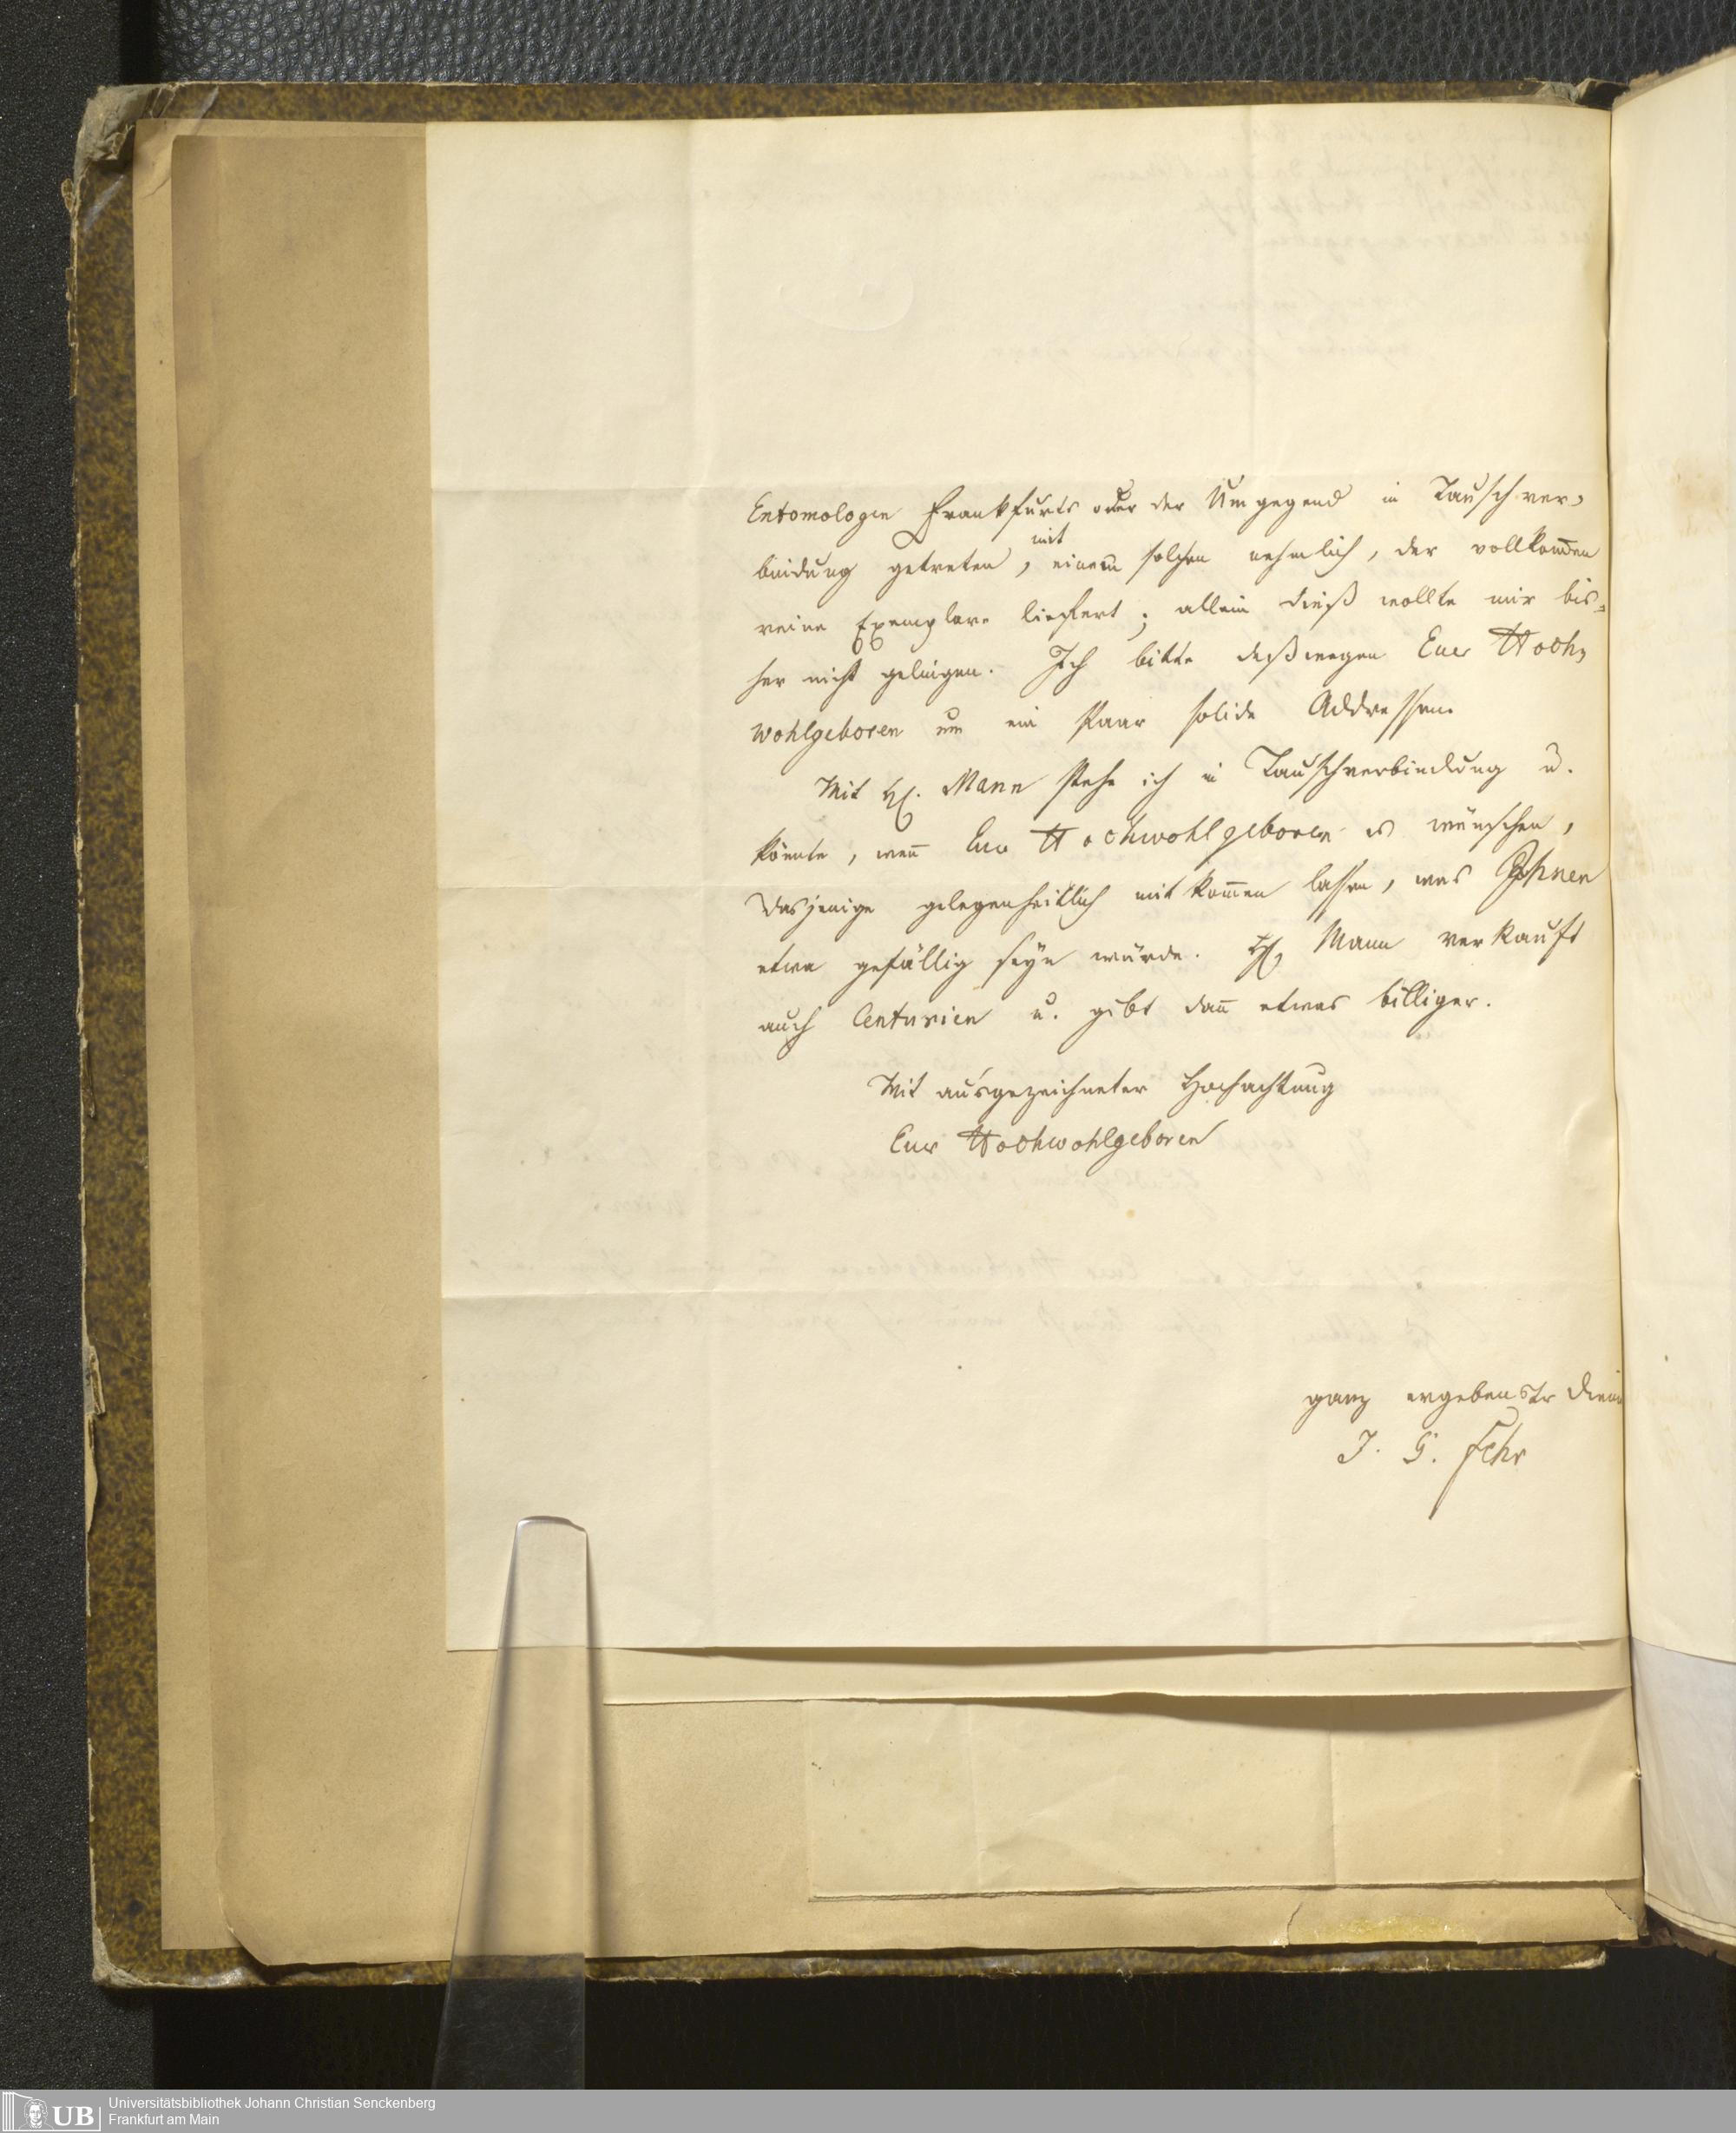 Entomologen Frankfurts oder der Umgegend in Tauschver-
bindung getreten, mit einem solchen nehmlich, der vollkom̄en
reine Exemplare liefert; allein dieß wollte mir bis-
her nicht gelingen. Ich bitte deßwegen Euer Hoch-
wohlgeboren um ein Paar solide Addressen.
Mit H. Mann stehe ich in Tauschverbindung u.
könnte, wen̄ Euer Hochwohlgeboren es wünschen,
dasjenige gelegenheitlich mitkom̄en lassen, was Ihnen
etwa gefällig seyn würde. H. Mann verkauft
auch Centurien u. gibt dan̄ etwas billiger.
Mit ausgezeichneter Hochachtung
Euer Hochwohlgeboren
ganz ergebenster Diener
J. G. Fehr
UB
Universitätsbibliothek Johann Christian Senckenberg
Frankfurt am Main